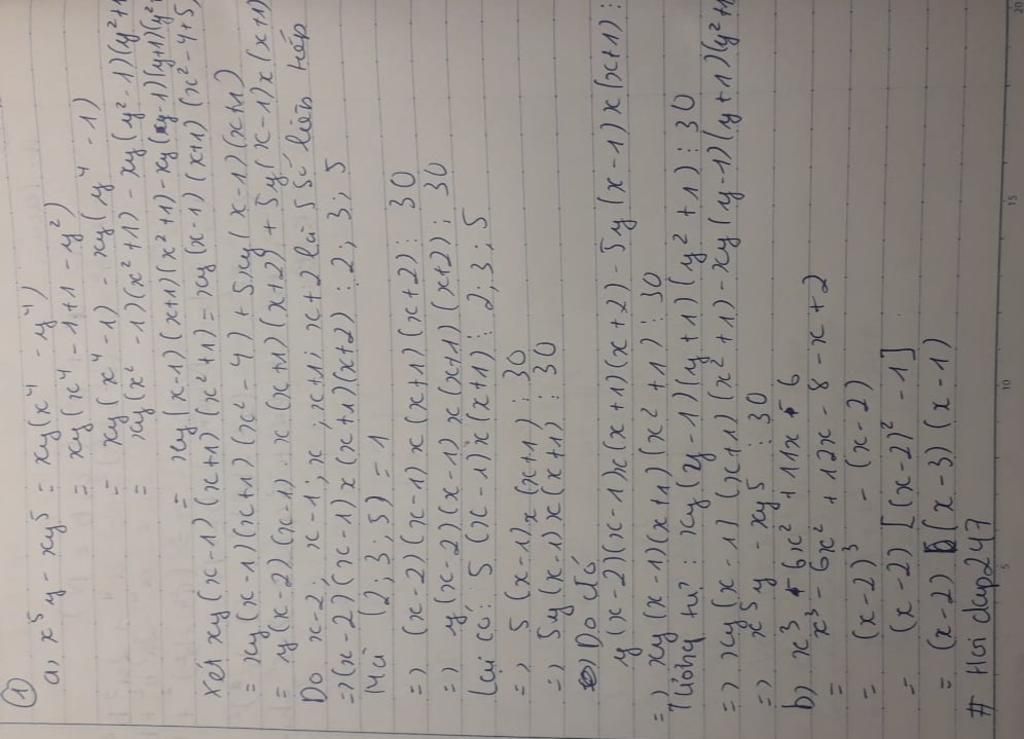 ①
a, x⁵y - xy⁵ = xy(x⁴ - y⁴)
= xy(x⁴ - 1 + 1 - y⁴)
= xy(x⁴ - 1) - xy(y⁴ - 1)
= xy(x² - 1)(x² + 1) - xy(y² - 1)(y² + 1)
= xy(x-1)(x+1)(x²+1) - xy(y-1)(y+1)(y²
Xét xy(x-1)(x+1)(x²+1) = xy(x-1)(x+1)(x²-4+5)
= xy(x-1)(x+1)(x²-4) + 5xy(x-1)(x+1)
= y(x-2)(x-1).x(x+1)(x+2) + 5y(x-1)x(x+1)
Do x-2; x-1; x; x+1; x+2 là 5 số liên tiếp
=> (x-2)(x-1)x(x+1)(x+2) ⋮ 2; 3; 5
Mà (2; 3; 5) = 1
=> (x-2)(x-1)x(x+1)(x+2) ⋮ 30
=> y(x-2)(x-1)x(x+1)(x+2) ⋮ 30
Lại có: 5(x-1)x(x+1) ⋮ 2; 3; 5
=> 5(x-1)x(x+1) ⋮ 30
=> 5y(x-1)x(x+1) ⋮ 30
Do đó
y(x-2)(x-1)x(x+1)(x+2) - 5y(x-1)x(x+1) ⋮
=> xy(x-1)(x+1)(x²+1) ⋮ 30
Tương tự: xy(y-1)(y+1)(y²+1) ⋮ 30
=> xy(x-1)(x+1)(x²+1) - xy(y-1)(y+1)(y²+1
=> x⁵y - xy⁵ ⋮ 30
b) x³ - 6x² + 11x - 6
= x³ - 6x² + 12x - 8 - x + 2
= (x-2)³ - (x-2)
= (x-2)[(x-2)² - 1]
= (x-2)(x-3)(x-1)
# Hoi dap247